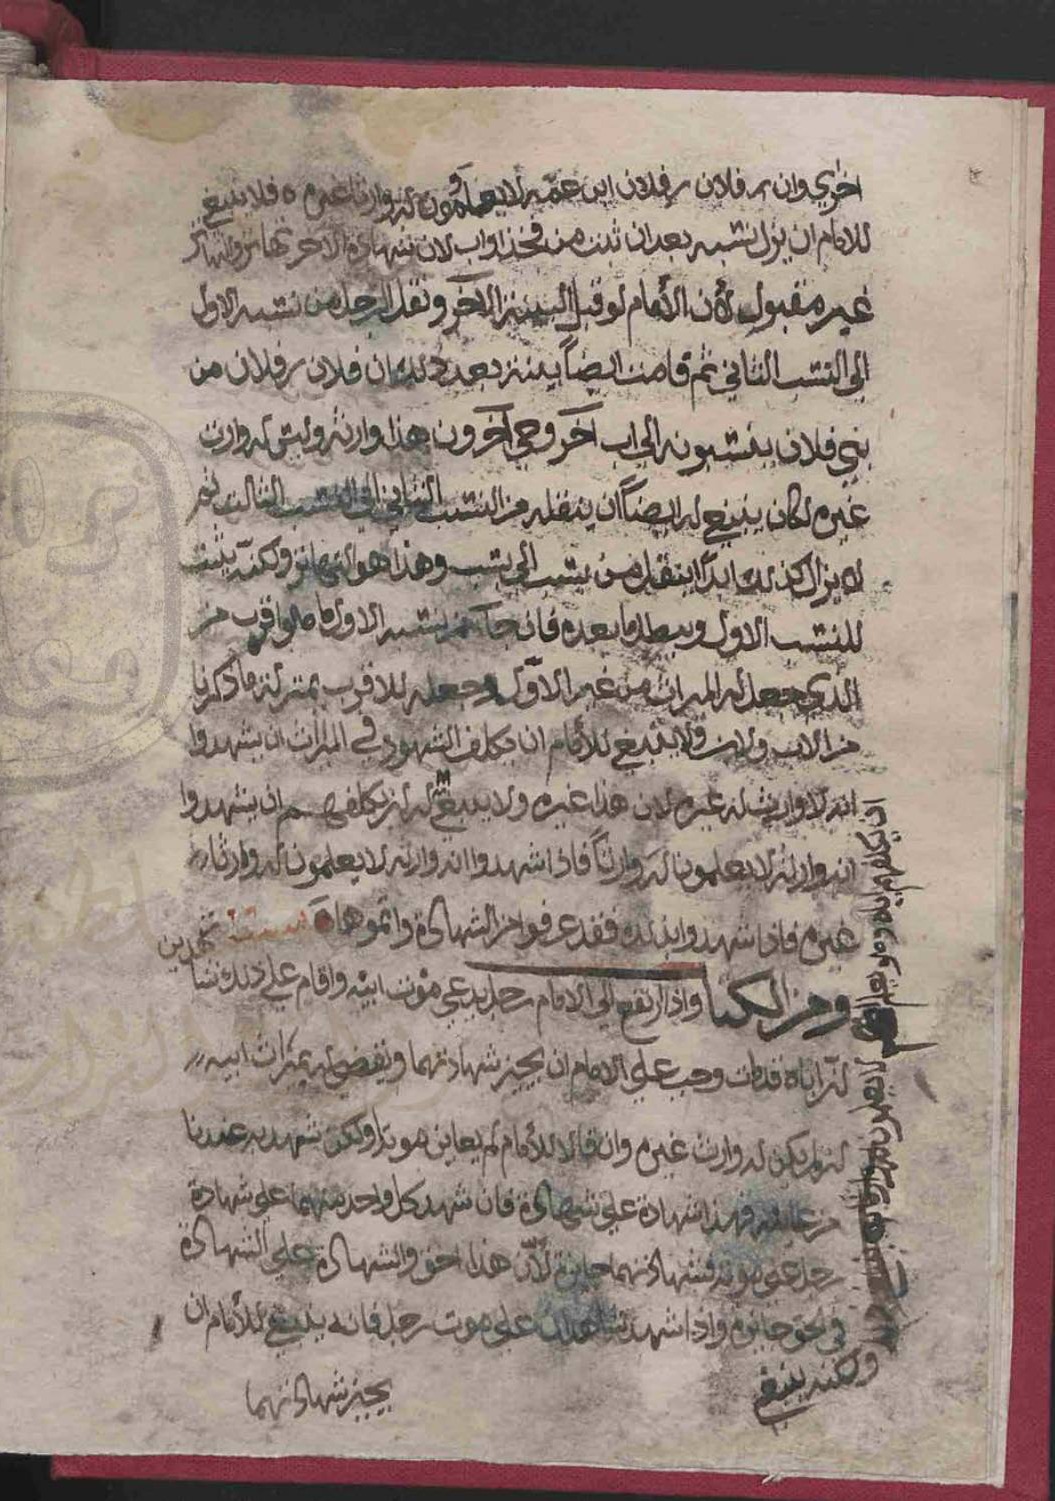 اخري وان فلان بن فلان ابن عمه لا يعلمون له وارثا غيره فلا ينبغي
للامام ان يزيل نسبه بعد ان ثبت من فخذ او اب لان شهادة الاخر تهاتر والتهاتر
غير مقبول لأن الأمام لو قبل البينة الآخر ونقل الرجل من نسبه الاول
الى النسب الثاني ثم قامت ايضاً بينة بعد ذلك ان فلان بن فلان من
بني فلان ينسبونه الى اب آخر وحي آخرون هذا وارثه وليس له وارث
غيره لكان ينبغي له ايضاً ان ينقله من النسب الثاني الى النسب الثالث ثم
لا يزال كذلك ابداً ينقل من نسب الى نسب وهذا هو التهاتر ولكنه يثبت
للنسب الاول ويبطل ما بعده فان جآء من نسبه الاول ما هو اقرب من
الذي جعل له الميراث من غير الاوّل وجعله للاقرب بمنزلة ما ذكرنا
من الاب ولا ينبغي للأمام ان يكلف الشهود في الميراث ان يشهدوا
انه لا وارث له غيره لان هذا غيره ولا ينبغي له ان يكلفهم ان يشهدوا
انه وارثه لا يعلمون له وارثاً فاذا شهدوا انه وارثه لا يعلمون له وارثا
غيره فاذا شهدوا بذلك فقد عرفوا من الشهادة واتموها
ومن الكتاب واذا ارتفع الى الامام رجل يدعي موت ابيه واقام على ذلك شاهدين
ان اباه قد مات وجب على الامام ان يجيز شهادتهما ويقضي له بميراث ابيه
ان لم يكن له وارث غيره وان قالا للأمام لم يعاين موته ولكن شهد به عندنا
من عاينه فهذا شهادة على شهادة فان شهد كل واحد منهما على شهادة
رجل على موته فشهادتهما جايزة لأن هذا حق والشهادة على الشهادة
في الحق جايزة واذا شهد شاهدان على موت رجل فانه ينبغي للأمام ان
يجيز شهادتهما
ولكنه ينبغي